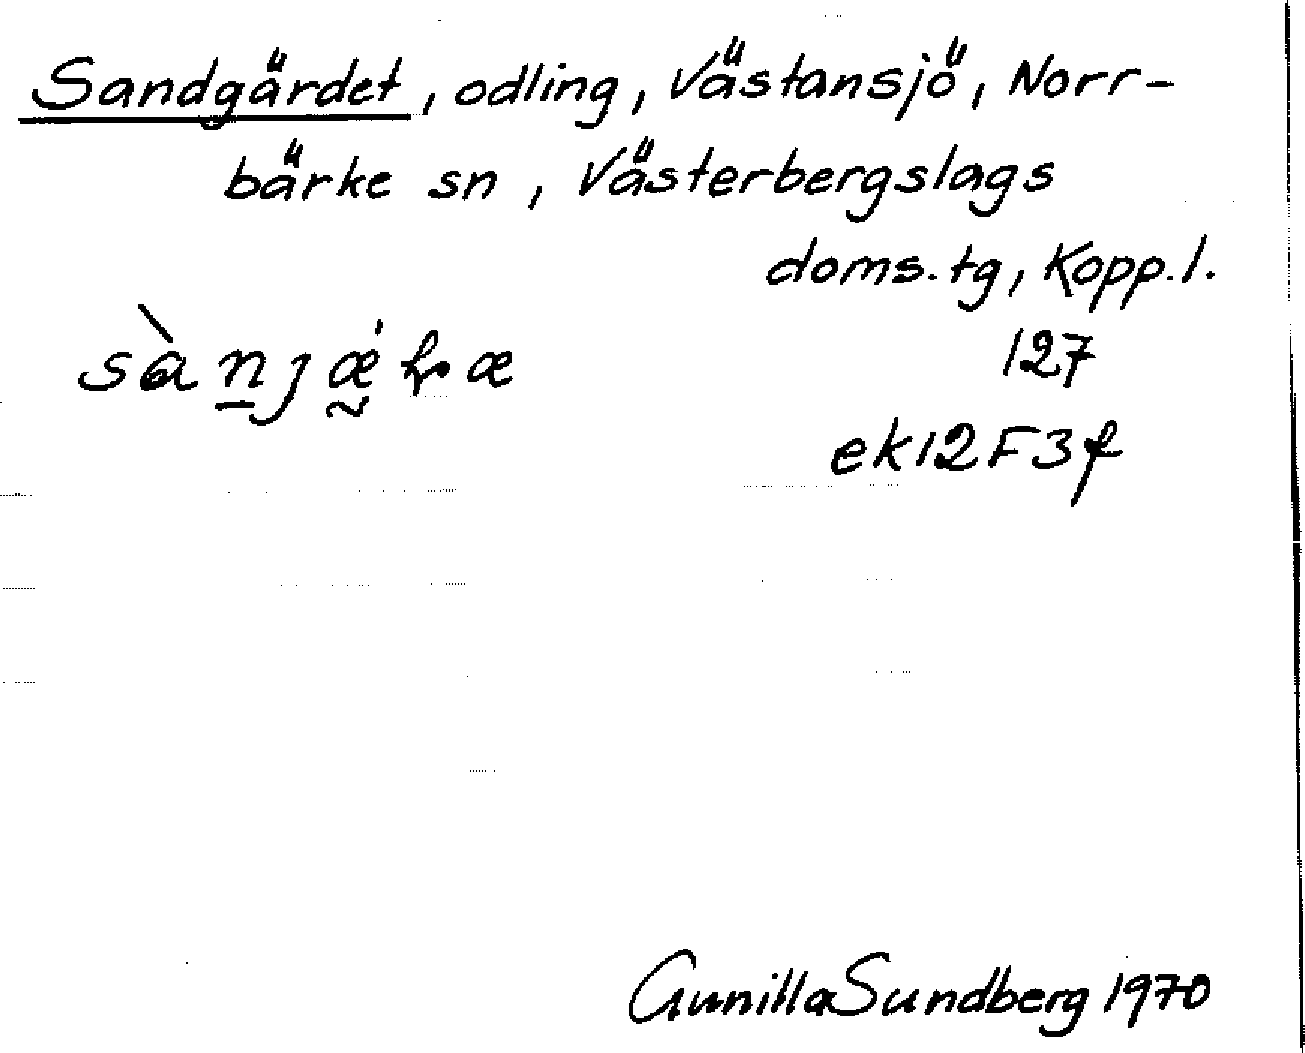 Sandgärdet, odling, Västansjö, Norr-
bärke sn, Västerbergslags
doms.tg, Kopp.l.
127
ek12F3f
Gunilla Sundberg 1970